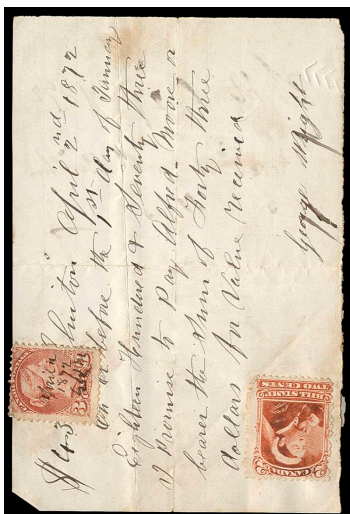 $43 Clinton April 2nd 1872
On or before the 1st day of January
Eighteen Hundred & Seventy three
I Promise to Pay Alfred Moore or
bearer the Sum of Forty three
dollars for Value received
George Wright
April 2
1872
3
CANADA
BILL STAMP
TWO CENTS